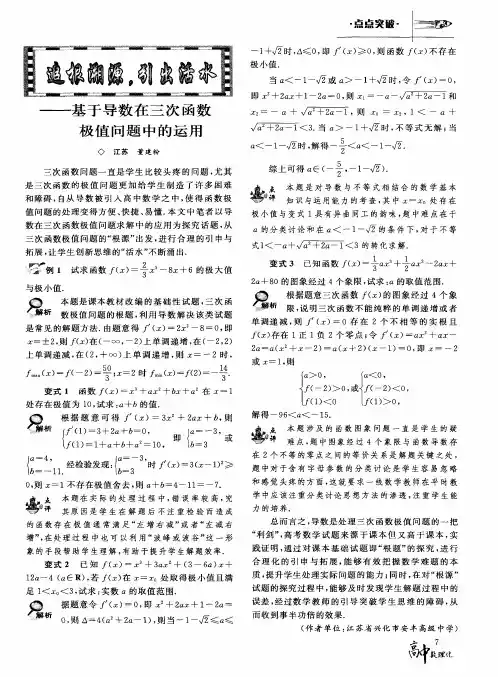 ·点点突破·
追根溯源,引出活水
——基于导数在三次函数
极值问题中的运用
◇ 江苏 董建粉
三次函数问题一直是学生比较头疼的问题,尤其
是三次函数的极值问题更加给学生制造了许多困难
和障碍,自从导数被引入高中数学之中,使得函数极
值问题的处理变得方便、快捷、易懂.本文中笔者以导
数在三次函数极值问题求解中的应用为探究话题,从
三次函数极值问题的“根源”出发,进行合理的引申与
拓展,让学生创新思维的“活水”不断涌出.
例 1 试求函数 f(x)=2/3x³-8x+6 的极大值
与极小值.
解析 本题是课本教材改编的基础性试题,三次函
数极值问题的根题,利用导数解决该类试题
是常见的解题方法.由题意得 f′(x)=2x²-8=0,即
x=±2,则 f(x)在(-∞,-2)上单调递增,在(-2,2)
上单调递减,在(2,+∞)上单调递增,则 x=-2 时,
f max(x)=f(-2)=50/3;x=2 时 f min(x)=f(2)=-14/3.
变式 1 函数 f(x)=x³+ax²+bx+a² 在 x=1
处存在极值为 10,试求:a+b 的值.
解析 根据题意可得 f′(x)=3x²+2ax+b,则
{f′(1)=3+2a+b=0, f(1)=1+a+b+a²=10, 即{a=-3, b=3 或
{a=4, b=-11, 经检验发现:{a=-3, b=3 时 f′(x)=3(x-1)²≥
0,则 x=1 不存在极值舍去,则 a+b=4-11=-7.
点评 本题在实际的处理过程中,错误率较高,究
其原因是学生在解题后不注重检验而造成
的函数存在极值通常满足“左增右减”或者“左减右
增”,在处理过程中也可以利用“波峰或波谷”这一形
象的手段帮助学生理解,有助于提升学生解题效率.
变式 2 已知 f(x)=x³+3ax²+(3-6a)x+
12a-4 (a∈R),若 f(x)在 x=x₀ 处取得极小值且满
足 1<x₀<3,试求:实数 a 的取值范围.
解析 据题意令 f′(x)=0,即 x²+2ax+1-2a=
0,则 Δ=4(a²+2a-1),则当-1-√2≤a≤
-1+√2时,Δ≤0,即 f′(x)≥0,则函数 f(x)不存在
极小值.
当 a<-1-√2或 a>-1+√2时,令 f′(x)=0,
即 x²+2ax+1-2a=0,则 x₁=-a-√(a²+2a-1)和
x₂=-a+√(a²+2a-1),则 x₁=x₂,1<-a+
√(a²+2a-1)<3.当 a>-1+√2时,不等式无解;当
a<-1-√2时,解得-5/2<a<-1-√2.
综上可得 a∈(-5/2,-1-√2).
点评 本题是对导数与不等式相结合的数学基本
知识与运用能力的考查,其中 x=x₀ 处存在
极小值与变式 1 具有异曲同工的韵味,题中难点在于
a 的分类讨论和在 a<-1-√2的条件下,对于不等
式1<-a+√(a²+2a-1)<3 的转化求解.
变式 3 已知函数 f(x)=1/3ax³+1/2ax²-2ax+
2a+80 的图象经过 4 个象限,试求:a 的取值范围.
解析 根据题意三次函数 f(x)的图象经过 4 个象
限,说明三次函数不能纯粹的单调递增或者
单调递减,则 f′(x)=0 存在 2 个不相等的实根且
f(x)存在 1 正 1 负 2 个零点,令 f′(x)=ax²+ax-
2a=a(x²+x-2)=a(x+2)(x-1)=0,即 x=-2
或 x=1,则
{a>0, f(-2)>0,或 f(1)<0 {a<0, f(-2)<0, f(1)>0,
解得-96<a<-15.
点评 本题涉及的函数图象问题一直是学生的疑
难点,题中图象经过 4 个象限与函数导数存
在 2 个不等的零点之间的等价关系是解题关键之处,
题中对于含有字母参数的分类讨论是学生容易忽略
和感觉头疼的方面,这就要求一线数学教师在平时教
学中应该注重分类讨论思想方法的渗透,注重学生能
力的培养.
总而言之,导数是处理三次函数极值问题的一把
“利剑”,高考数学试题来源于课本但又高于课本,实
践证明,通过对课本基础试题即“根题”的探究,进行
合理化的引申与拓展,能够有效把握数学难题的本
质,提升学生处理实际问题的能力;同时,在对“根源”
试题的探究过程中,能够及时发现学生解题过程中的
误差,经过数学教师的引导突破学生思维的障碍,从
而收到事半功倍的效果.
(作者单位:江苏省兴化市安丰高级中学)
7
高中数理化